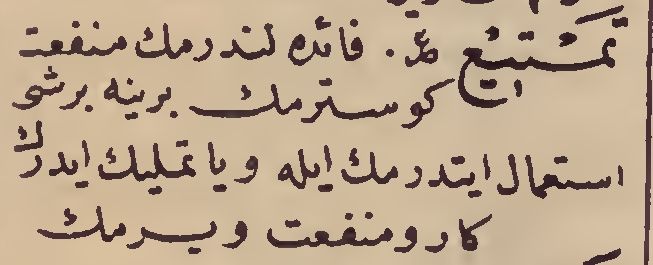 تَمْتِيع عر. فائده لندرمك منفعت
كوسترمك برينه برشى
استعمال ايتدرمك ايله ويا تمليك ايدرك
كار و منفعت ويرمك